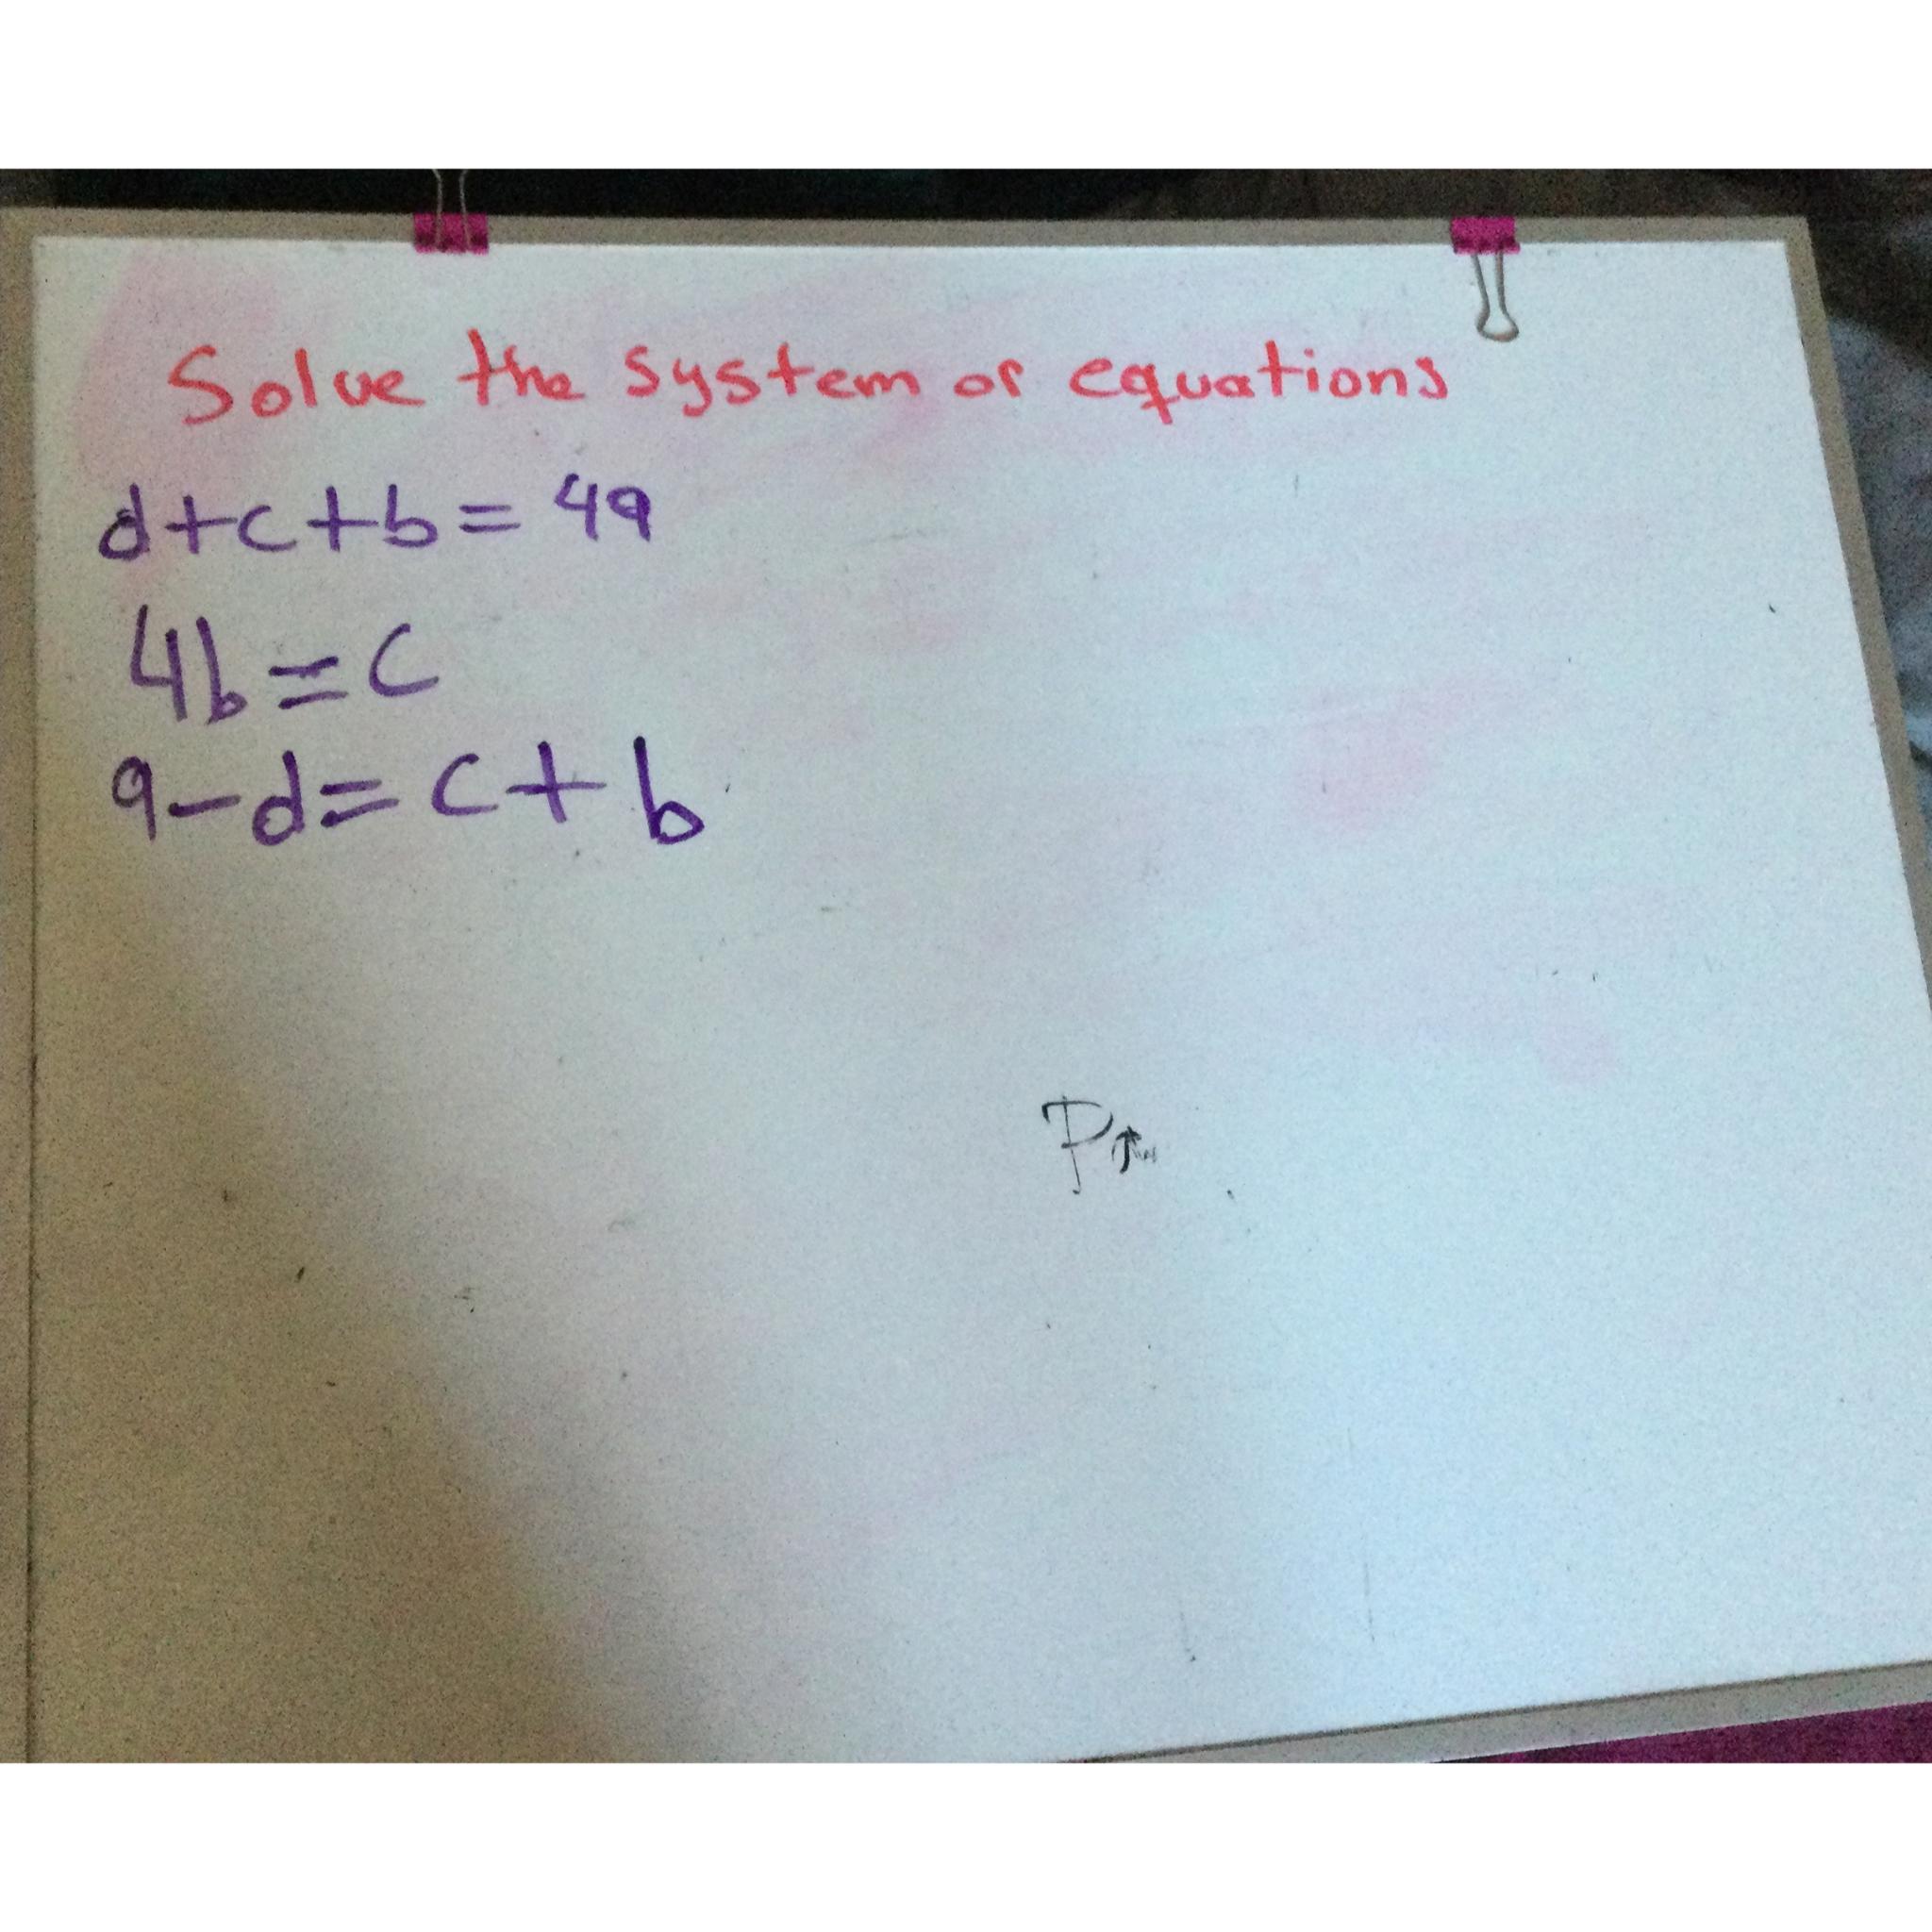 Solve the system of equations
d+c+b=49
4b=c
9-d=c+b